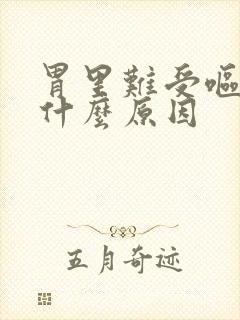 胃里難受嘔
什麼原因
五月奇迹